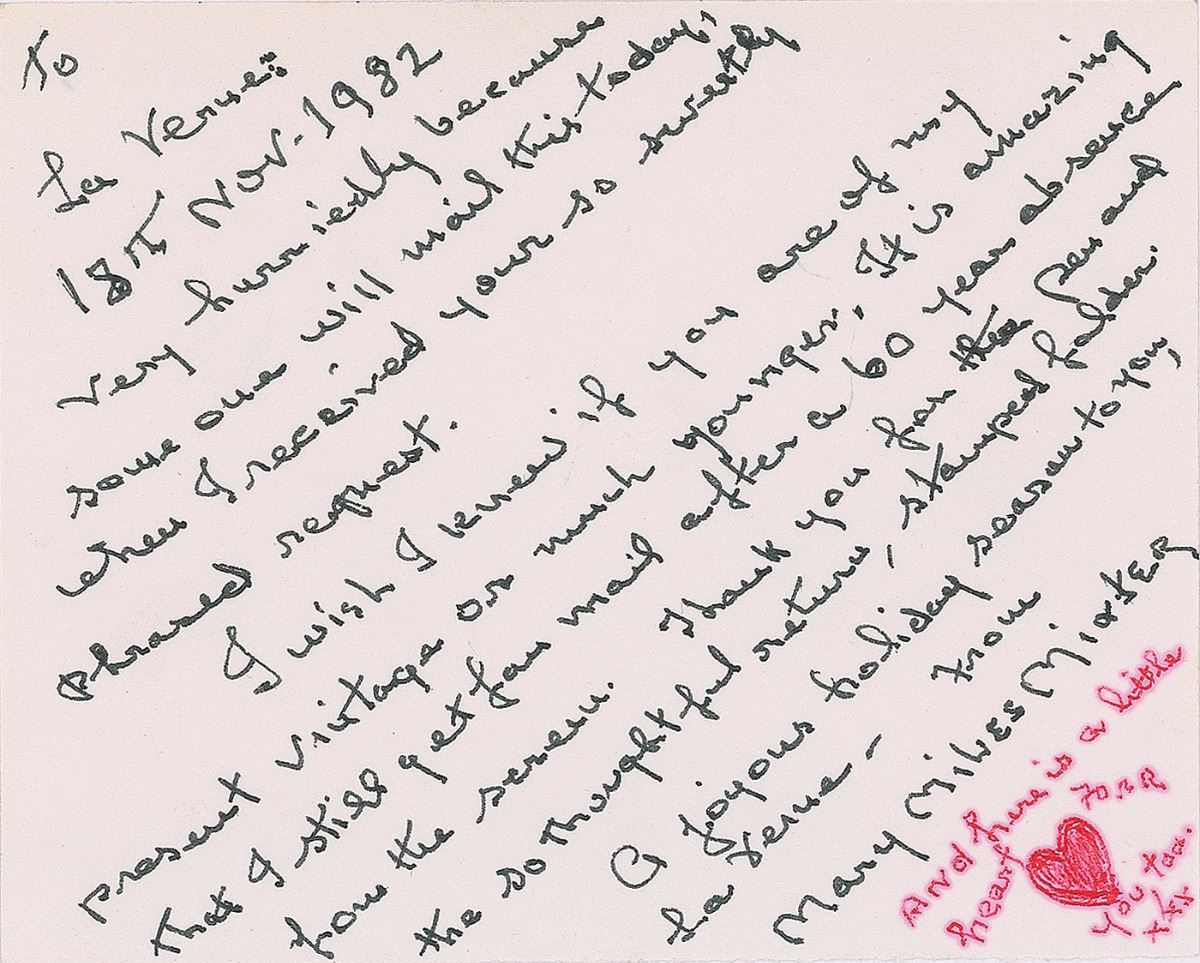 To
La Verne:
18th Nov-1982
Very hurriedly because
some one will mail this today,
when I received your so sweetly
phrased request.
I wish I knew if you are of my
present vintage or much younger. It is amazing
that I still get fan mail after a 60 year absence
from the screen. Thank you for the pen and
the so thoughtful return, stamped folder.
A joyous holiday season to you,
La Verne - from
Mary Miles Minter
And here is a little
heart for
you too.